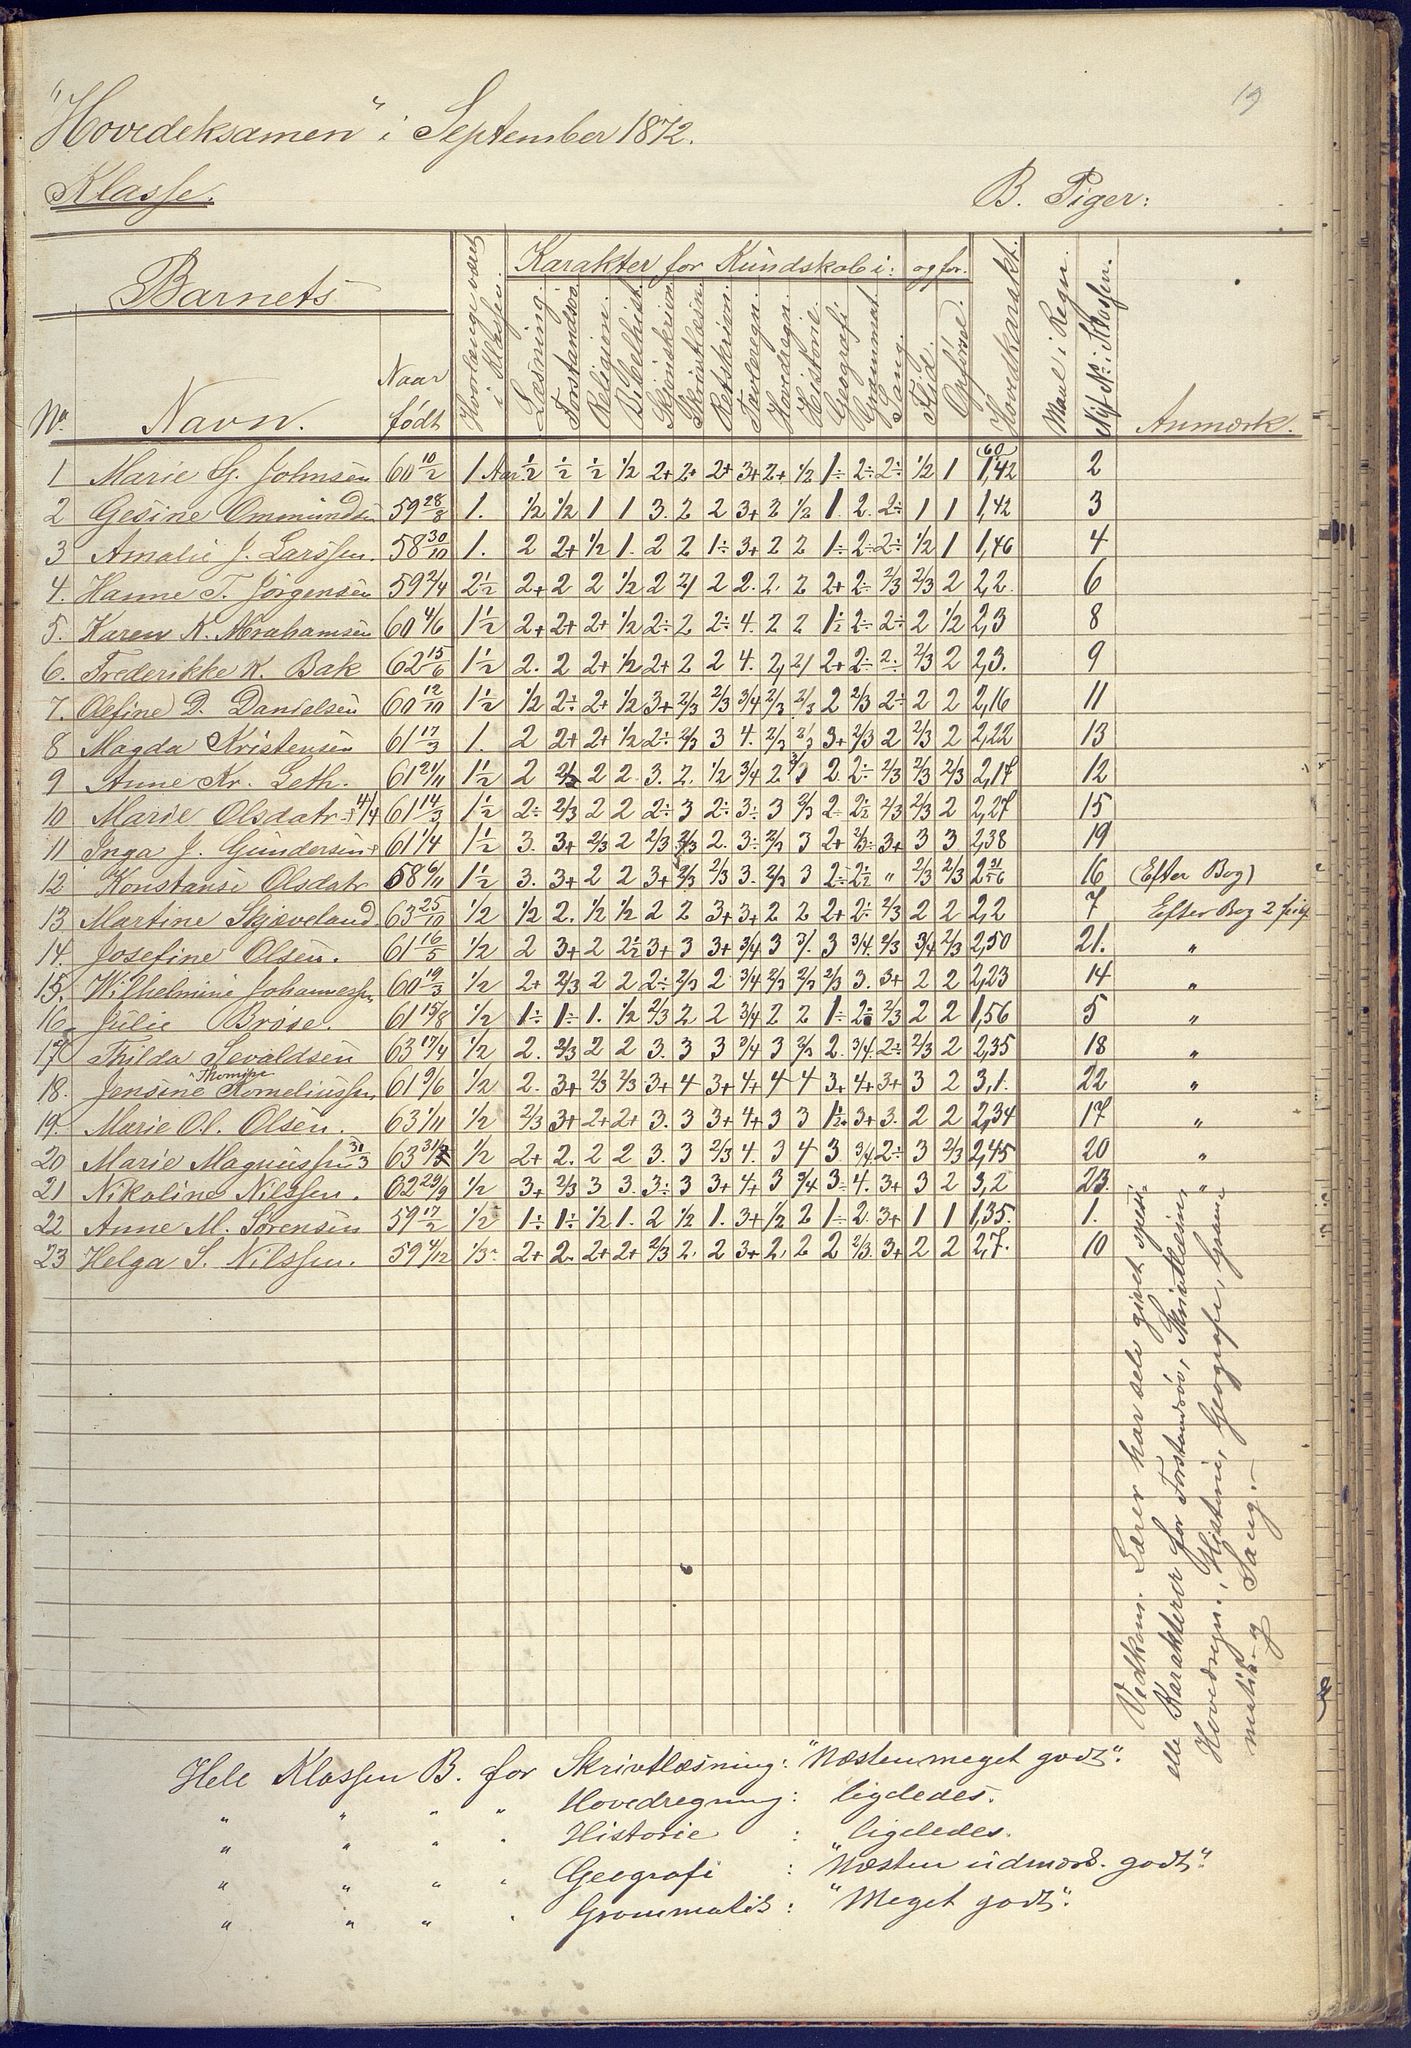 19
"Hovedeksamen" i September 1872.
Klasse. B. Piger:
Barnets
Karakter for Kundskab i: og for.
No. Navn. Naar født Hvorlænge været i Klassen. Læsning. Forstandsøv. Religion. Bibelhist. Skjønskrivn. Skrivtlæsn. Retskrivn. Tavleregn. Hovedregn. Historie. Geografi Grammat. Sang. Flid. Opførsel. Hovedkarakt. Maal i Regn. Nyt No. i Klassen. Anmærk.
1 Marie G. Johnsen 60 10/2 1 Aar 1/2 1/2 1/2 1/2 2+ 2+ 2+ 3+ 2+ 1/2 1÷ 2÷ 2÷ 1/2 1 1,42 60 2
2 Gesine Ommundsen 59 28/8 1. 1/2 1/2 1 1 3. 2 2 3+ 2 1/2 1. 2. 2÷ 1 1 1,42 3
3 Amalie J. Larssen. 58 30/10 1. 2 2+ 1/2 1. 2 2 1÷ 3+ 2 2 1÷ 2÷ 2÷ 1/2 1 1,46 4
4. Hanne T. Jørgensen 59 2/4 2 1/2 2+ 2 2 1/2 2 2/1 2 2. 2. 2 2+ 2÷ 2/3 2/3 2 2,2. 6
5. Karen K. Abrahamsen 60 4/6 1 1/2 2+ 2+ 2+ 1/2 2÷ 2 2÷ 4. 2 2 1 1/2 2÷ 2÷ 2 1/2 2,3 8
6. Frederikke K. Bak 62 15/6 1 1/2 2. 2 2+ 1/2 2+ 2 2 4. 2/1 2/1 2+ 2÷ 2÷ 2/3 2 2,3. 9
7. Olefine D. Danielsen 60 12/10 1 1/2 1/2 2÷ 2+ 1/2 3+ 2/3 2/3 3/4 2/3 2/3 2 2/3 2÷ 2 2 2,16 11
8 Magda Kristensen 61 17/3 1. 2 2+ 2+ 1/2 2÷ 2/3 3 4. 2/3 2/3 3+ 2/3 2 2/3 2 2,22 13
9 Anne Kr. Leth. 61 21/11 1 1/2 2 2/3 2 2. 3. 2. 1/2 3/4 2 2/1 2. 2÷ 2/3 2/3 2/3 2,17 12
10 Marie Olsdatr 4/4 61 14/3 1 1/2 2÷ 2/3 2 2 2÷ 3 2÷ 3÷ 3 2/3 2÷ 2 1/2 2/3 2/3 2 2,27 15
11 Inga J. Gundersen 61 1/4 1 1/2 3. 3+ 2/3 2 2/3 2/3 2. 3÷ 2/3 3 2+ 2/3 3+ 3 3 2,38 19
12 Konstanse Olsdatr 58 6/11 1 1/2 3. 3+ 2 2 3+ 2/3 2/3 3. 2/3 3 2÷ 2 1/2 " 2/3 2/3 16 (Efter Bog)
13 Martine Skjæveland 63 25/10 1/2 1/2 2. 1/2 1/2 2 2 3+ 3+ 2 2 2+ 2÷ 2/3 2 2 2,2 7 Efter Bog 2
14. Josefine Olsen. 61 16/5 1/2 2 3+ 2 2 1/2 3+ 3 3+ 3/4 3 3 3/4 2/3 3/4 2/3 2,50 21. "
15. Wilhelmine Johannessen 60 19/3 1/2 2+ 2/3 2 2 2÷ 2/3 2 3/4 2/3 2/3 2/3 3. 3+ 2 2 2,23 14 "
16. Julie Brose. 61 15/8 1/2 1÷ 1÷ 1. 1/2 2/3 2 2 3/4 2 2 1÷ 2÷ 2/3 2 2 1,56 5 "
17 Thilda Sevaldsen 63 17/4 1/2 2. 2/3 2 2 3. 3 3 3/4 3 2/3 2. 3/4. 2÷ 2/3 2 2,35 18 "
18. Jensine Thomine Korneliussen 61 9/6 1/2 2. 3+ 2/3 2/3 3+ 4 3+ 4+ 4 4 3+ 4+ 3+ 3 2 3,1. 22 "
19. Marie Ol. Olsen. 63 1/11 1/2 2/3 3+ 2+ 2+ 3. 3 3+ 4+ 3 3 1 1/2 3+ 3. 2 2 2,34 17 "
20 Marie Magnussen 31/3 63 31/3 1/2 2+ 2. 2 2 3. 3 2/3 4. 3 4 3 3/4 2÷ 3 2/3 2,45 20 "
21 Nikoline Nilssen. 62 29/9 1/2 3+ 2/3 3 3. 3÷ 3 3+ 4+ 3 3/4 3÷ 4. 3+ 3 2 3,2 23. "
22 Anne M. Sørensen 59 17/2 1/2 1÷ 1÷ 1/2 1. 2 1/2 1. 3+ 1/2 2 1÷ 2. 3+ 1 1 1,35. 1.
23 Helga S. Nilssen. 59 4/12 1/3 2+ 2. 2+ 2+ 2/3 2. 2 3+ 2. 2 2 2/3. 3+ 2 2 2,7. 10
Vedkom. Lærer har selv givet speci-
elle Karakterer for Forstandsøv, Skrivtlæsning
Hovedregn., Historie, Geografi, Gram-
matik og Sang.
Hele Klassen B. for Skrivtlæsning: "Næsten meget godt".
" " " " Hovedregning: ligeledes.
" " " " Historie : ligeledes.
" " " " Geografi : "Næsten udmærk. godt".
" " " " Grammatik : "Meget godt".